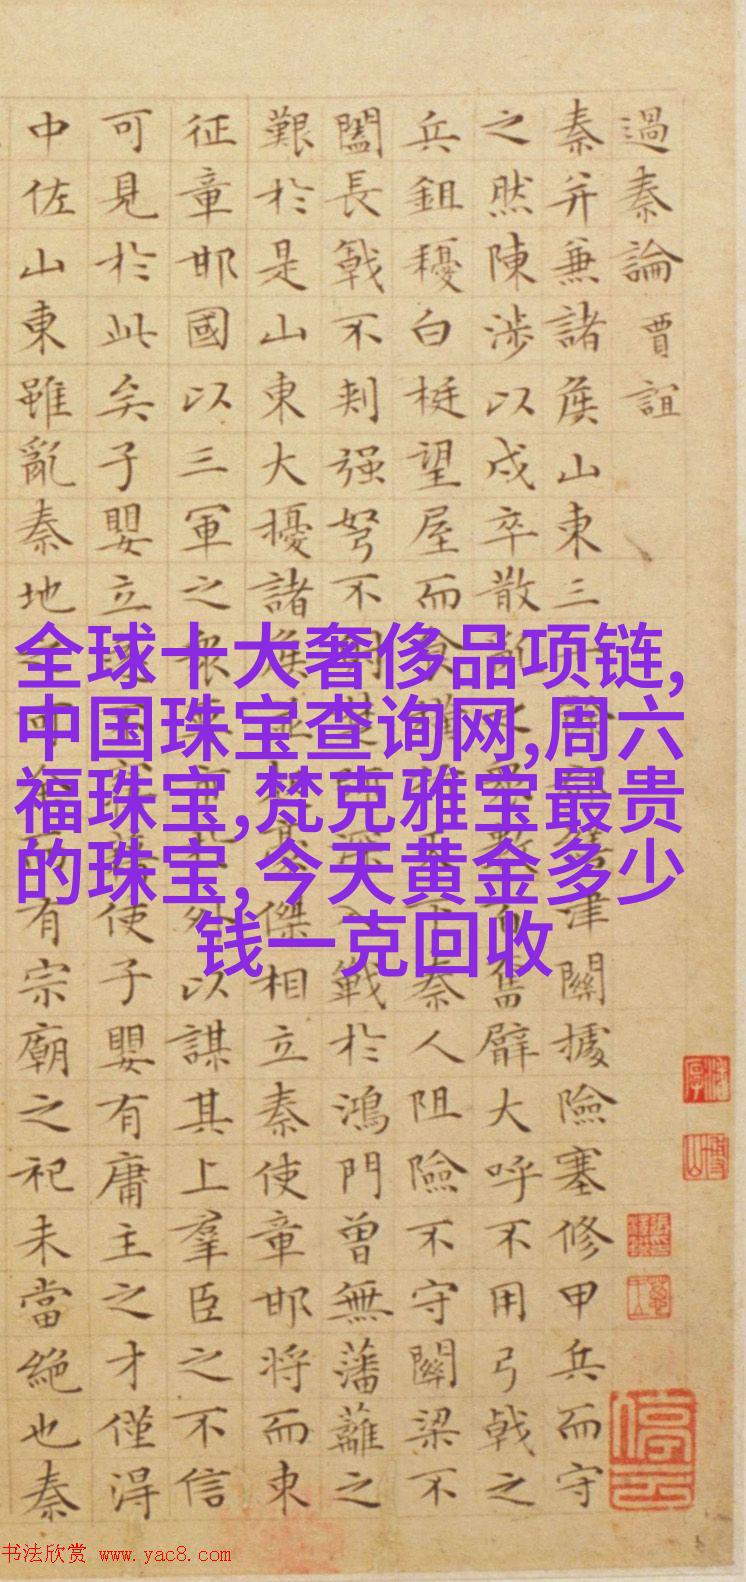 過秦論 賈誼
秦并兼諸侯山東三津關據險塞修甲兵而守
之然陳涉以戍卒散奮臂大呼不用弓戟之
兵鉏耰白梃望屋而秦人阻險不守關梁不
闔長戟不刺强弩不戰於鴻門曾無藩籬之
艱於是山東大擾諸侯傑相立秦使章邯將而東
征章邯國以三軍之外以謀其上羣臣之不信
可見於此矣子嬰立使子嬰有庸主之才僅得
中佐山東雖亂秦地有宗廟之祀未當絶也秦
全球十大奢侈品项链,
中国珠宝查询网,周六
福珠宝,梵克雅宝最贵
的珠宝,今天黄金多少
钱一克回收
书法欣赏 www.yac8.com